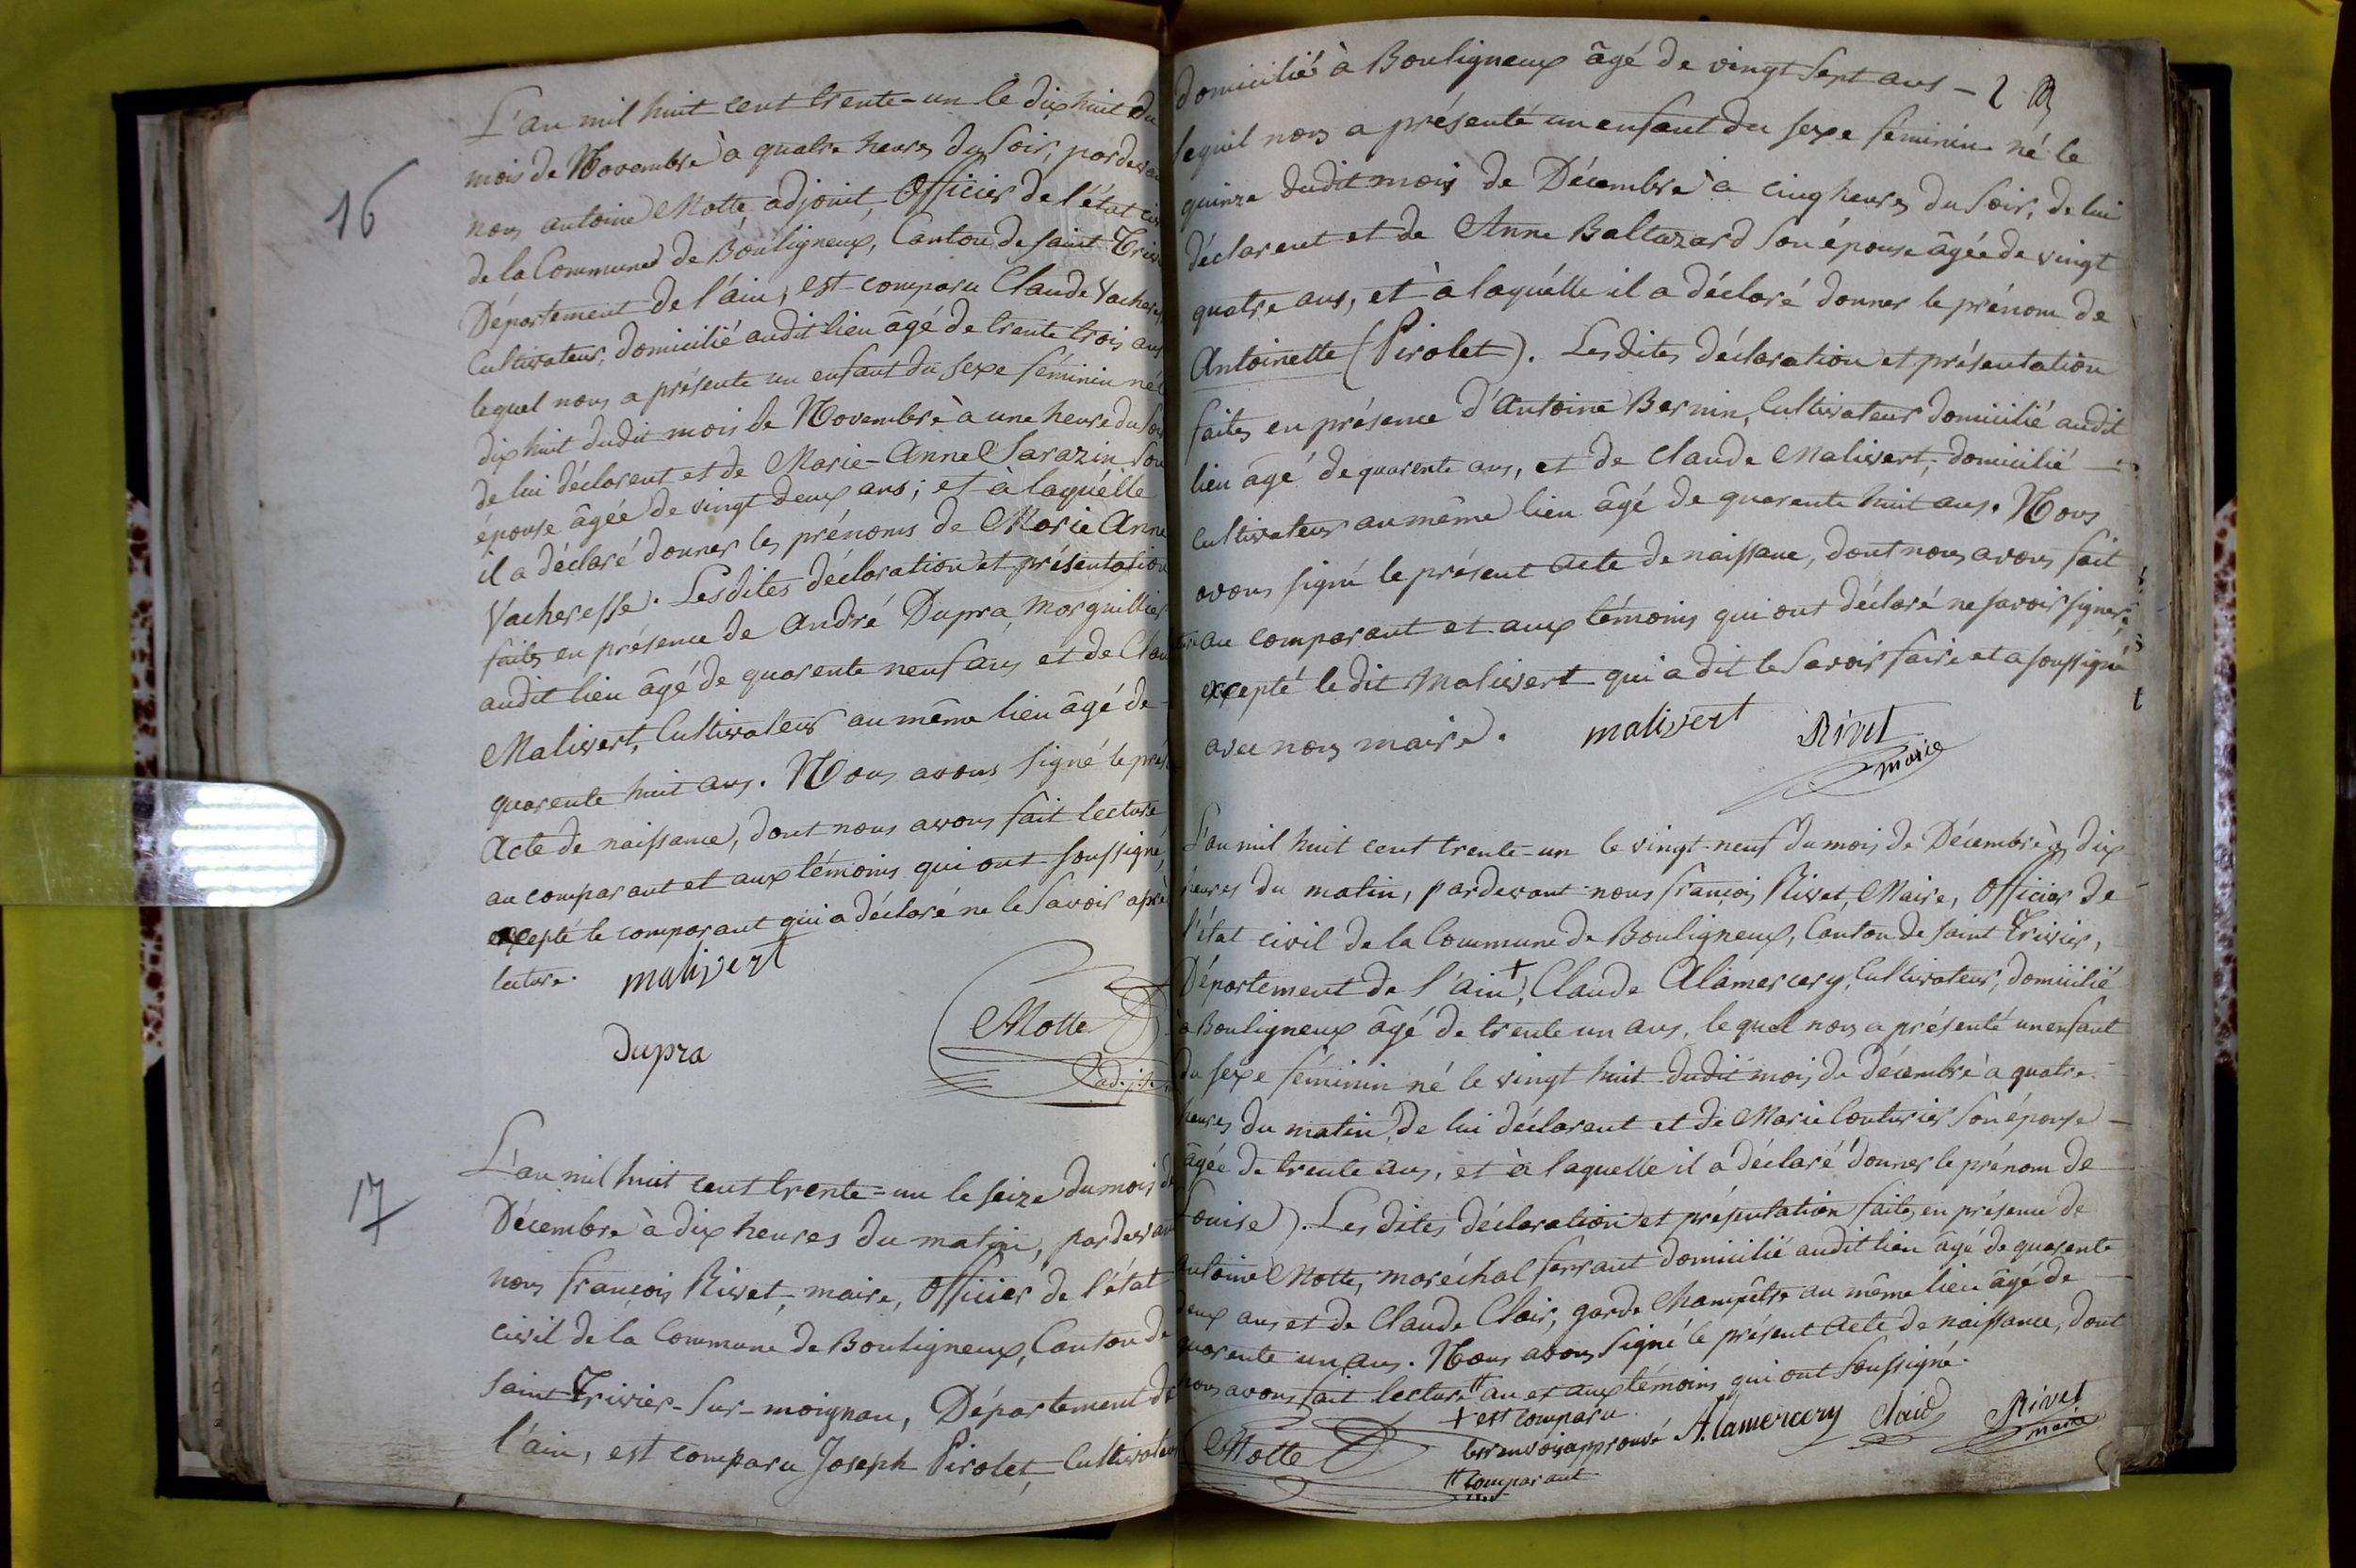 16
L'an mil huit cent trente-un le dix huit du
mois de Novembre à quatre heures du soir, pardevan
nous antoine Motte, adjoint, Officier de l'état civ
de la Commune de Bouligneux, Canton de saint Triv
Département de l'ain, est comparu Claude Vacheres
Cultivateur, domicilié audit lieu âgé de trente trois ans
lequel nous a présenté un enfant du sexe féminin né l
dix huit dudit mois de Novembre à une heure du soi
de lui déclarent et de Marie-Anne Sarazin son
épouse âgée de vingt deux ans; et à laquélle
il a déclaré donner les prénoms de Marie Anne
Vacheresse. Lesdites déclaration et présentation
faites en présence de André Dupra, Marguillier
audit lieu âgé de quarente neuf ans et de Clau
Malivert, Cultivateur au même lieu âgé de
quarente huit ans. Nous avons signé le prés
Acte de naissance, dont nous avons fait lecture
au comparant et aux témoins qui ont soussigné,
excepté le comparant qui a déclaré ne le savoir aprè
lecture. malivert
Motte
adj.
Dupra
17
L'an mil huit cent trente-un le seize du mois de
Décembre à dix heures du matin, pardevan
nous françois Rivet, maire, Officier de l'état
civil de la Commune de Bouligneux, Canton de
saint Trivier-sur-moignan, Département de
l'ain, est comparu Joseph Pirolet, Cultivateur
domicilié à Bouligneux âgé de vingt sept ans -
lequil nous a présenté un enfant du sexe feminin né le
quinze dudit mois de Décembre à cinq heures du soir, de lui
déclarent et de Anne Baltazard son épouse âgée de vingt
quatre ans, et à laquélle il a déclaré donner le prénom de
Antoinette (Pirolet). Lesdites déclaration et présentation
faites en présence d'Antoine Bernin, Cultivateur domicilié audit
lieu âgé de quarente ans, et de Claude Malivert, domicilié
Cultivateur au même lieu âgé de quarente huit ans. Nous
avons signé le présent acte de naissance, dont nous avons fait
au comparant et aux témoins qui ont déclaré ne savoir signer,
excepté le dit Malivert qui a dit le savoir faire et a soussigné
avec nous maire. malivert Rivet
maire
L'an mil huit cent trente-un le vingt-neuf du mois de Décembre à dix
heures du matin, pardevant nous françois Rivet, Maire, Officier de
l'état civil de la Commune de Bouligneux, Canton de saint Trivier,
Département de l'Ain +, Claude Alamercery, Cultivateur, domicilié
à Bouligneux âgé de trente un ans, lequel nous a présenté un enfant
du sexe féminin né le vingt huit dudit mois de décembre à quatre
heures du matin, de lui déclarent et de Marie Couturier son épouse
âgée de trente ans, et à laquelle il a déclaré donner le prénom de
Louise). Lesdites déclaration et présentation faites en présence de
Antoine Motte, maréchal ferrant domicilié audit lieu âgé de quarente
deux ans et de Claude Clair, garde Champêtre au même lieu âgé de
quarente un ans. Nous avons signé le présent Acte de naissance, dont
nous avons fait lecture # au et aux témoins qui ont soussigné.
+ est comparu
les renvois approuvé Alamercery Claid Rivet
maire
Motte
# comparant